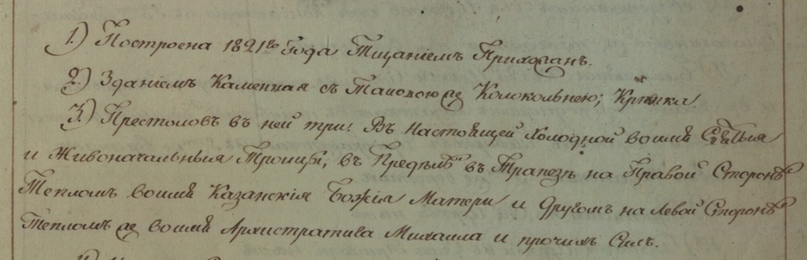 1.) Построена 1821го Года Тщаніемъ Прихожанъ.
2.) Зданіемъ Каменная съ Таковою же Колокольнею; Крѣпка
3.) Престоловъ въ ней три: Въ Настоящей Холодной воимя Святыя
и Живоначальныя Троицы, въ Предѣлѣ въ Трапезѣ на Правой Сторонѣ
Тепломъ воимя Казанскія Божія Матери и Другомъ на Левой Сторонѣ
Тепломъ же воимя Архистратига Михаила и прочихъ Силъ.